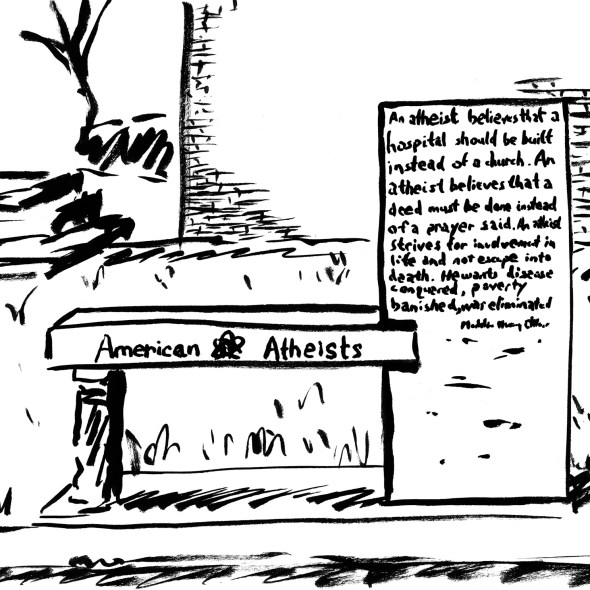 An atheist believes that a
hospital should be built
instead of a church. An
atheist believes that a
deed must be done instead
of a prayer said. An atheist
strives for involvement in
life and not escape into
death. He wants disease
conquered, poverty
banished, was eliminated
American Atheists